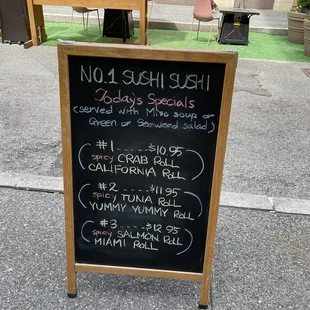 No.1 SUSHI SUSHI
Todays Specials
(served with Miso soup or
Green or Seaweed salad)
#1 ..... $10.95
spicy CRAB ROLL
CALIFORNIA ROLL
#2 ..... $11.95
spicy TUNA ROLL
YUMMY YUMMY ROLL
#3 ..... $12.95
spicy SALMON ROLL
MIAMI ROLL